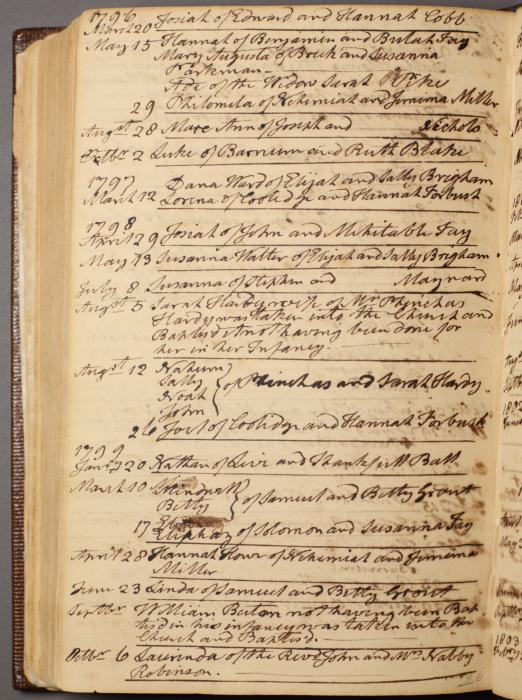 1796
March 20 Josiah of Edward and Hannah Cobb
May 15 Hannah of Benjamin and Bulah Fay
Mary Augusta of Breck and Susanna
Parkman
of the Widow Sarah Pike
29 Philomela of Nehemiah and Jemima Miller
Augst 28 Mare Ann of Joseph and Nichols
Octbr 2 Luke of Barnum and Ruth Blake
1797
Dana Ward of Elijah and Sally Brigham
March 12 Lorena of Coolidge and Hannah Forbush
1798
April 29 Josiah of John and Mehitable Fay
May 13 Susanna Walter of Elijah and Sally Brigham
July 8 Susanna of Stephen and Maynard
Augst 5 Sarah Hardy wife of Mr Phinehas
Hardy was taken into the Church and
Baptisd it not having been done for
her in her Infancy.
Augst 12 Nahum
Sally
Noah
John
of Phinehas and Sarah Hardy
26 Joel of Coolidge and Hannah Forbush
1799
Janry 20 Nathan of Levi and Thankfull Ball
March 10
Betty
of Samuel and Betty Grout
17
Eliphaz of Solomon and Susanna Fay
April 28 Hannah of Nehemiah and Jemima
Miller
June 23 Linda of Samuel and Betty Grout
Septbr William not having been Bap
tisd in his infancy was taken into the
Church and Baptisd.
Octbr 6 Laurinda of the Revd John and Mrs Nabby
Robinson.